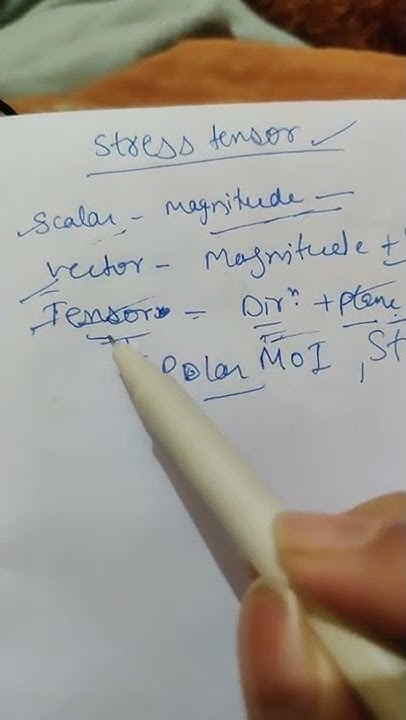 Stress tensor
Scalar - Magnitude
Vector - Magnitude +
Tensor = Dirⁿ + plane
Polar MOI , St